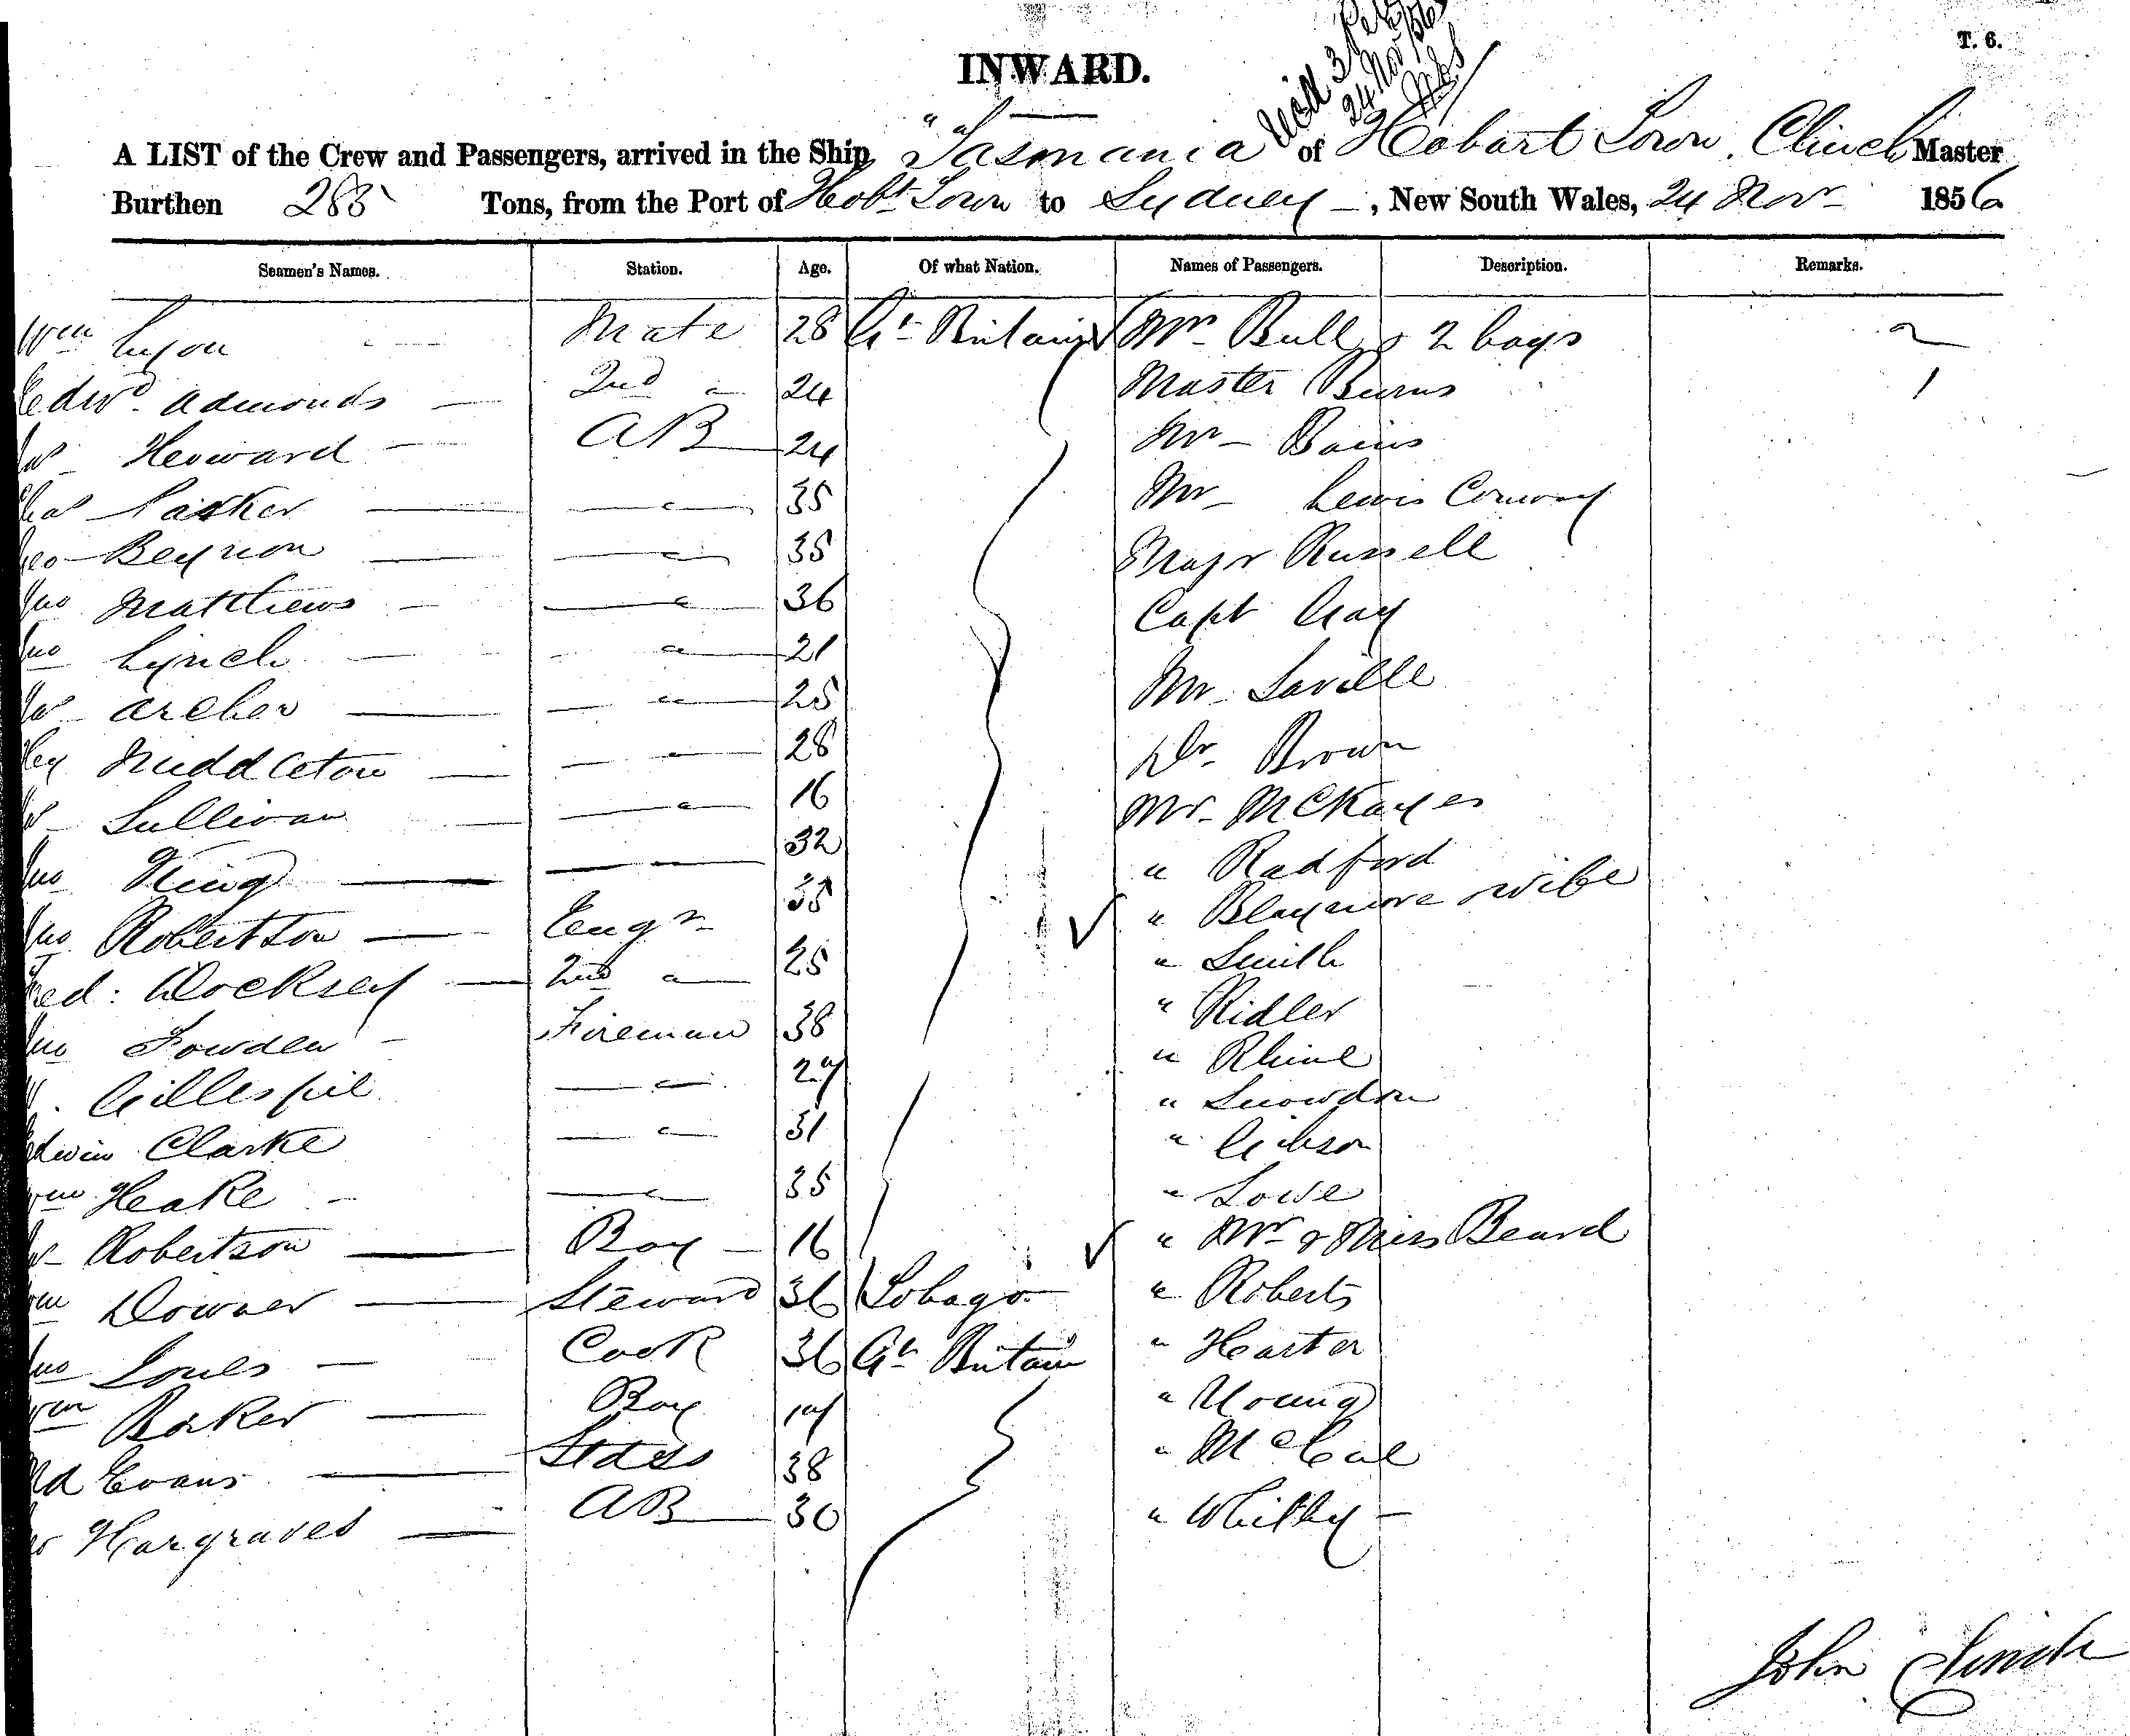 T. 6.
INWARD.
24 Nov
A LIST of the Crew and Passengers, arrived in the Ship "Tasmania" of Hobart Town. Clinch Master
Burthen 285 Tons, from the Port of Hobt Town to Sydney, New South Wales, 24 Nov 1856
Seamen's Names. Station. Age. Of what Nation. Names of Passengers. Description. Remarks.
Wm Lyon Mate 28 Gt Britain Mrs Bull & 2 boys 2
Edwd. Admonds 2nd " 24 Master Burns 1
Jas Heoward AB 24 Mr Bains
Chas Parker " 35 Mr Lewis Conway
Geo Beynon " 35 Major Russell
Jno Matthews " 36 Capt Gay
Jno Lynch " 21 Mr Saville
Jas Archer " 25 Dr Brown
Hy Middleton " 28 Mr McKay
Sullivan " 16 " Radford
Jno King 32 " Blaymore & wife
Jno Robertson Engr 35 " Smith
Fred: Docksey 2nd " 25 " Ridler
Jno Fowden Fireman 38 " Rhine
W. Gillespie " 27 " Snowdon
Edwin Clarke " 31 " Gibson
Wm Heake " 35 " Lowe
Jas Robertson Boy 16 " Mr & Miss Beard
Wm Downer Steward 36 Tobago " Roberts
Jno Jones Cook 36 Gt Britain " Harter
Wm Barker Boy 17 " Young
Evans Stdss 38 " McCal
Hargraves AB 30 " Whitby
John Clinch